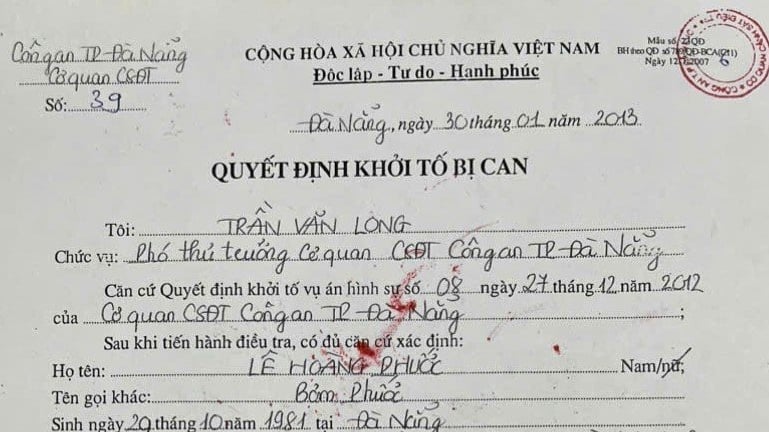 Công an TP-Đà Nẵng
Cơ quan CSĐT
Số: 39
CỘNG HÒA XÃ HỘI CHỦ NGHĨA VIỆT NAM
Độc lập - Tự do - Hạnh phúc
Mẫu số: 23QĐ
BH theo QĐ số
Đà Nẵng, ngày 30 tháng 01 năm 2013
QUYẾT ĐỊNH KHỞI TỐ BỊ CAN
Tôi: TRẦN VĂN LONG
Chức vụ: Phó thủ trưởng Cơ quan CSĐT Công an TP-Đà Nẵng
Căn cứ Quyết định khởi tố vụ án hình sự số 08 ngày 27 tháng 12 năm 2012
của Cơ quan CSĐT Công an TP-Đà Nẵng ;
Sau khi tiến hành điều tra, có đủ căn cứ xác định:
Họ tên: LÊ HOÀNG PHƯỚC Nam/nữ;
Tên gọi khác: Bởm Phước
Sinh ngày 29 tháng 10 năm 1981 tại Đà Nẵng